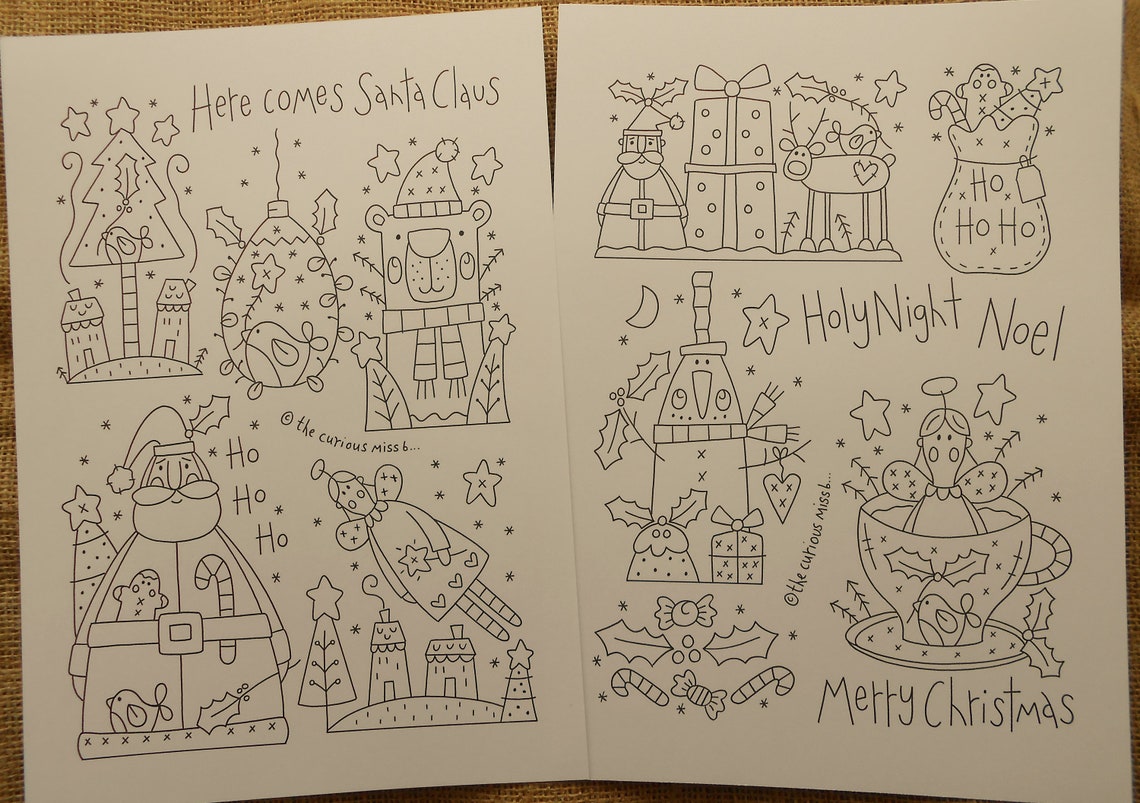 Here comes Santa Claus
© the curious miss b...
Ho
Ho
Ho
HO
HO HO
Holy Night
Noel
© the curious miss b...
Merry Christmas